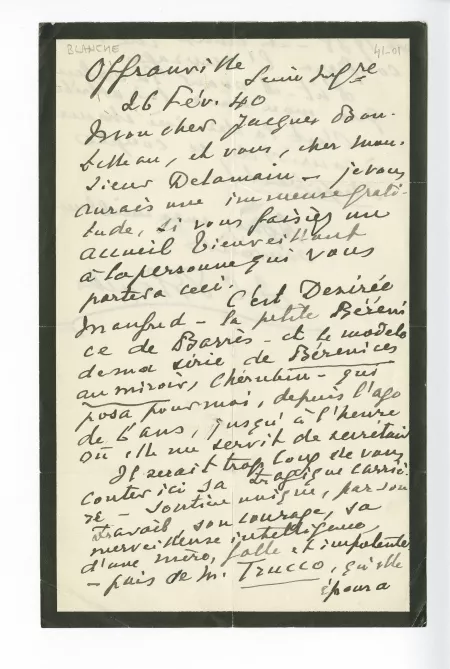 BLANCHE
41-01
Offranville
Seine Infre
26 Fév. 40
Mon cher Jacques Bou-
telleau, et vous, cher mon-
sieur Delamain – je vous
aurais une immense grati-
tude, si vous faisiez un
accueil bienveillant
à la personne qui vous
portera ceci.
C'est Désirée
Manfred – la petite Béréni
ce de Barrès – et le modèle
de ma série de Bérénices
au miroir, Chérubin – qui
posa pour moi, depuis l'age
de 6 ans, jusqu'à l'heure
où elle me servit de secrétaire
Il serait trop long de vous
conter ici sa tragique carriè-
re – soutien unique, par son
travail, son courage, sa
merveilleuse intelligence,
d'une mère, folle et impotente,
– puis de M. Trucco, qu'elle
épousa